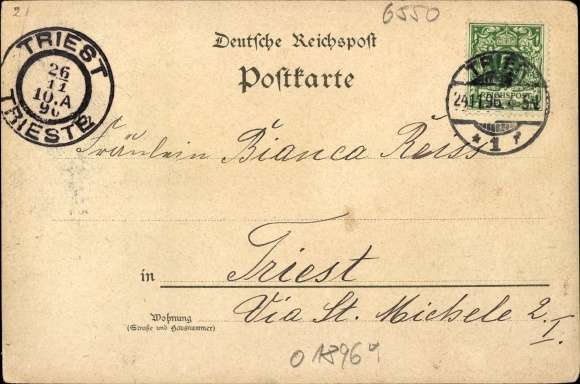 2
6550
Deutsche Reichspost
Postkarte
TRIEST
26
11
10.A
96
TRIESTE
24.11.96
1
REICHSPOST
Fräulein Bianca Reiss
in Triest
Wohnung
(Straße und Hausnummer)
Via St. Michele 2.
I.
01896